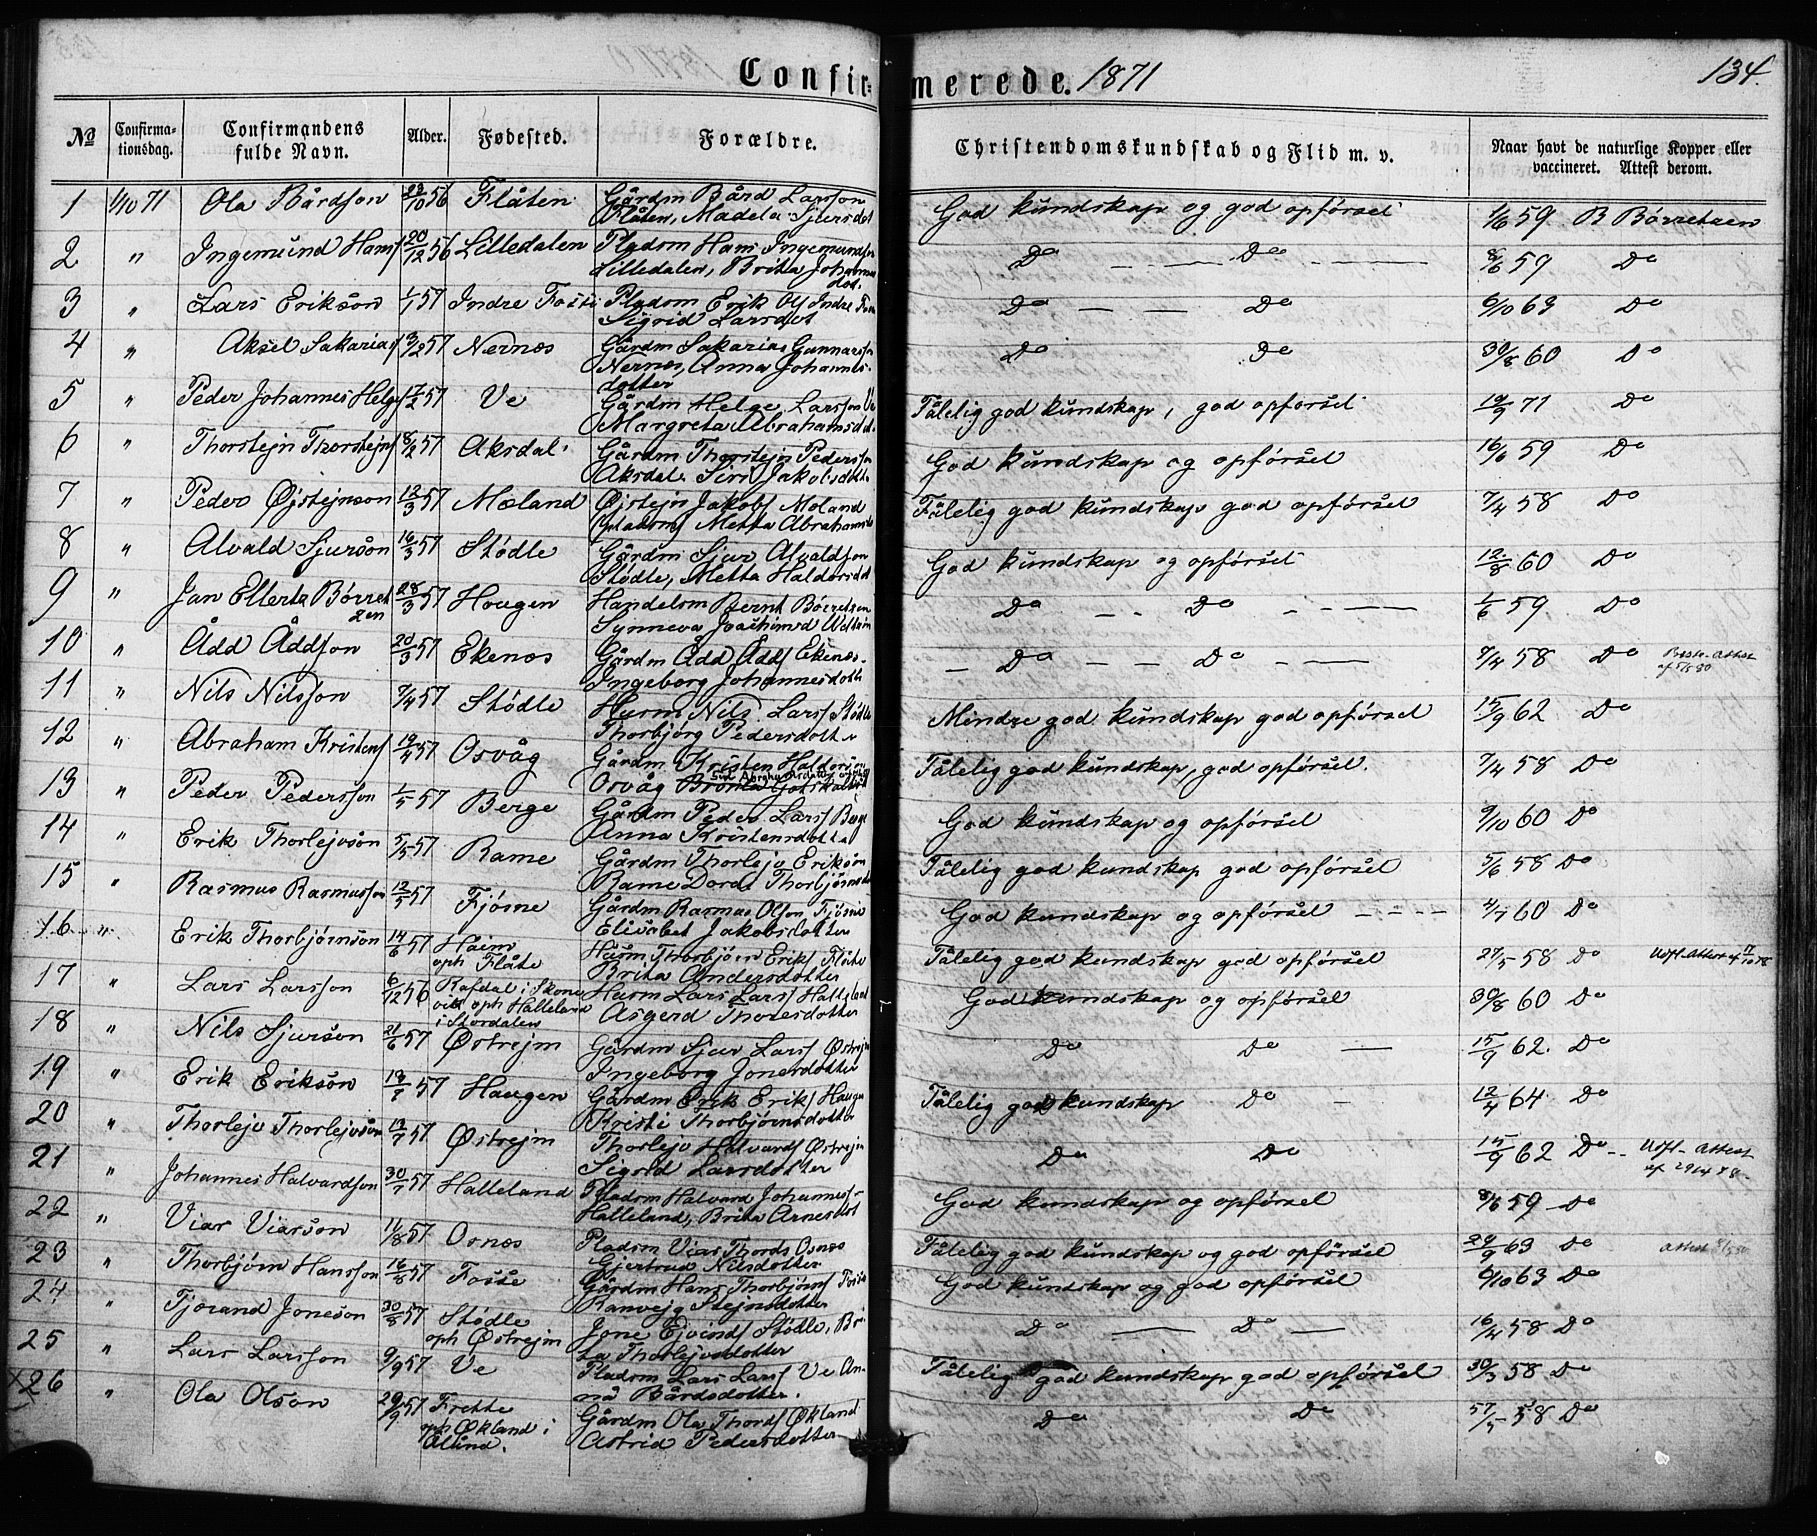 Confirmerede. 1871
134.
№ Confirmationsdag. Confirmandens fulde Navn. Alder. Fødested. Forældre. Christendomskundskab og Flid m. v. Naar havt de naturlige Kopper eller vaccineret. Attest derom.
1 1/10 71 Ola Bårdson 23/10 56 Flåten Gårdm Bård Larsson Flåten, Madela Sjursdot God kundskap og god opførsel 1/6 59 B Børretsen
2 " Ingemund Hansſ 20/12 56 Lilledalen Pladsm Hans Ingemundsſon Lilledalen, Brita Johannesdot. Do — Do — 8/6 59 Do
3 " Lars Erikson 1/1 57 Indre Fosse Pladsm Erik Olſ Indre Foss Sigrid Larsdot Do — — Do 6/10 63 Do
4 " Aksel Sakariasſ 3/2 57 Nernæs Gårdm Sakarias Gunnarsson Nernæs, Anna Johannesdotter Do Do 30/8 60 Do
5 " Peder Johannes Helgeſ 17/2 57 Ve Gårdm Helge Larsson Ve Margreta Abrahamsdot Tålelig god kundskap, god opførsel 19/9 71 Do
6 " Thorstejn Thorstejnſ 8/2 57 Aksdal Gårdm Thorstejn Pedersson Aksdal Siri Jakobsdott. God kundskap og opførsel 16/6 59 Do
7 " Peder Øjstejnson 12/3 57 Moland Øjstejn Jakobſ Moland (pladsm) Metta Abrahamsd Tålelig god kundskap god opførsel 7/4 58 Do
8 " Alvald Sjurson 16/3 57 Stødle Gårdm Sjur Alvaldson Stødle, Metta Haldorsdot God kundskap og opførsel 12/8 60 Do
9 " Jan Ellerts Børretzen 28/3 57 Hougen Handelsm Bernt Børretzen Synneva Joachimsd Do — Do — 1/6 59 Do
10 " Ådd Åddson 20/3 57 Ekenæs Gårdm Ådd Åddſ Ekenæs Ingeborg Johannesdotte — Do — — Do — 7/4 58 Do
11 " Nils Nilsson 7/4 57 Stødle Husm Nils Larsſ Stødle Thorbjørg Pedersdotte Mindre god kundskap god opførsel 15/9 62 Do
12 " Abraham Kristenſ 19/4 57 Osvåg Gårdm Kristen Haldorson Osvåg Tålelig god kundskap, god opførsel. 7/4 58 Do
13 " Peder Pedersson 1/5 57 Berge Gårdm Peder Larsſ Berge Anna Kristensdotte God kundskap og opførsel 9/10 60 Do
14 " Erik Thorlejvson 5/5 57 Rame Gårdm Thorlejv Erikson Rame Dorde Thorbjørnsdo Tålelig god kundskap god opførsel 5/6 58 Do
15 " Rasmus Rasmusson 12/5 57 Fjøsne Gårdm Rasmus Olson Fjøsne Elisabet Jakobsdotter God kundskap og opførsel — — — 4/7 60 Do
16 " Erik Thorbjørnson 14/6 57 Håim oph Flåte Husm Thorbjørn Erikſ Flåte Brita Andersdotter Tålelig god kundskap god opførsel 27/5 58 Do Udfl. Attest
17 " Lars Larsson 6/12 56 Rafdal i Skonevik oph Halleland i Stordalen Husm Lars Larsſ Halleland Asgerd Thoresdotter God kundskap og opførsel 30/8 60 Do
18 " Nils Sjurson 21/6 57 Østrejm Gårdm Sjur Larsſ Østrejm Ingeborg Jonesdotter Do Do — 15/9 62. Do
19 " Erik Erikson 13/7 57 Haugen Gårdm Erik Erikſ Haugen Kristi Thorbjørnsdotter Tålelig god kundskap Do — 12/4 64 Do
20 " Thorlejv Thorlejvson 13/7 57 Østrejm Thorlejv Halvardſ Østrejm Sigrid Larsdotter Do Do 15/9 62 Do Udfl. Attest
21 " Johannes Halvardson 30/7 57 Halleland Pladsm Halvard Johannesſ Halleland, Brita Arnesdot God kundskap og opførsel 8/6 59 Do
22 " Viar Viarson 11/8 57 Osnæs Pladsm Viar Thordſ Osnæs Gjertrud Nilsdotter Tålelig god kundskap og god opførsel 29/9 63 Do Attest
23 " Thorbjørn Hansson 16/8 57 Fosse Gårdm Hans Thorbjørnſ Fosse Ranvejg Stejnsdotter God kundskap og god opførsel 6/10 63 Do
24 " Tjorand Joneson 30/8 57 Stødle oph Østrejm Jone Ejvindſ Stødle, Brita Thorlejvsdotter Do — Do — 16/4 58 Do
25 " Lars Larsson 9/9 57 Ve Pladsm Lars Larsſ Ve Anna Bårdsdotter. Tålelig god kundskap god opførsel 30/3 58 Do
x 26 " Ola Olson 29/9 57 Frette oph Økland i Ølund. Gårdm Ola Thordſ Økland Astrid Pedersdotter Do Do 58 Do